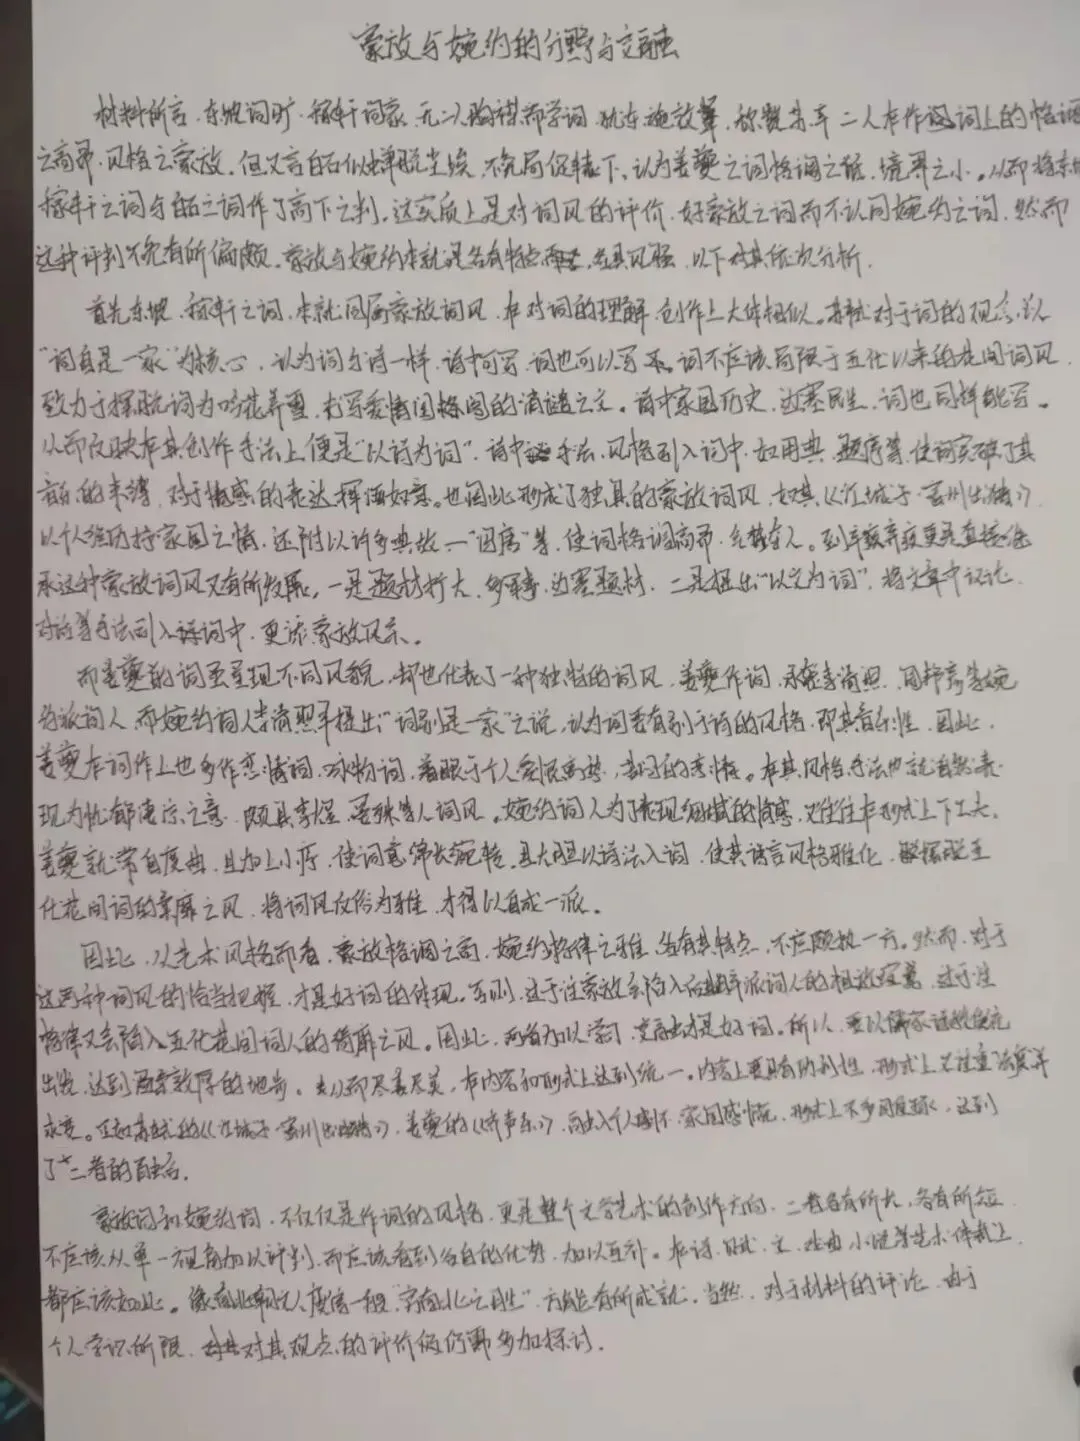 豪放与婉约的分野与交融
材料所言，东坡词旷，稼轩词豪，无二人胸襟而学词，犹东施效颦，称赞苏辛二人在作词上的格调
之高昂，风格之豪放。但又言白石似蝉脱尘埃，不免局促辕下。认为姜夔之词格调之，境界之小。从而将东坡
稼轩之词与白石之词作了高下之判。这实质上是对词风的评价，好豪放之词而不认同婉约之词，然而
这种评判不免有所偏颇，豪放与婉约本就是各有特点，各具风，以下对其依次分析。
首先东坡、稼轩之词，本就同属豪放词风，在对词的理解、创作上大体相似。苏轼对于词的观念，以
“词自是一家”为核心，认为词与诗一样，诗中可写，词也可以写，词不应该局限于五代以来的花间词风
致力于摆脱词为吟花弄雪，闺的之文。诗中家国历史，边塞民生，词也同样能写。
从而反映在其创作手法上便是“以诗为词”，诗中手法、风格引入词中，如用典、题序等，使词突破了其
音韵的束缚，对于情感的表达挥洒如意。也因此形成了独具的豪放词风，如其《江城子·密州出猎》
以个人抒家国之情，还附以许多典故、“词序”等，使词格调高昂，夺人。到辛弃疾更是直接继
承这种豪放词风又有所发展，一是题材扩大，多军事、边塞题材，二是提出“以文为词”，将文章中议论、
对话等手法引入词中，更添豪放风采。
而姜夔的词虽呈现不同风貌，却也代表了一种独特的词风，姜夔作词，承李清照、周邦彦等婉
约派词人，而婉约词人李清照早提出“词别是一家”之说，认为词要有别于诗的风格，即其音乐性，因此，
姜夔在词作上也多作恋情词、咏物词，着眼于个人，的恋情。在其风格手法也就自然表
现为忧郁凄凉之意，颇具李煜、晏殊等人词风。婉约词人为了表现细腻的情感，又往往在形式上下工夫，
姜夔就常自度曲，且加上小序，使词意绵长婉转，且大胆以诗法入词，使其语言风格雅化，摆脱五
代花间词的靡之风，将词风反俗为雅，才得以自成一派。
因此，以艺术风格而看，豪放格调之高，婉约格律之雅，各有其特点，不应颇执一方。然而，对于
这两种词风的恰当把握，才是好词的体现。否则，过于注豪放会陷入辛派词人的粗放，过于注
格律又会陷入五代花间词人的绮靡之风。因此，两者加以学习，交融才是好词。所以，要以儒家诗教
出发，达到敦厚的地步。从而尽善尽美，在内容和形式上达到统一。内容上要具有性，形式上又注重法度并
求变。正如苏轼的《江城子·密州出猎》，姜夔的《》，个人感怀、家国感慨，形式上不多用，达到
了二者的自由。
豪放词和婉约词，不仅仅是作词的风格，更是整个文学艺术的创作方向，二者各有所长，各有所短，
不应该从单一视角加以评判，而应该看到各自的优势，加以互补。在诗、赋、文、戏曲、小说等艺术体裁上
都应该如此。像南北朝文人庾信一般，“穷南北之胜”方能有所成就。当然，对于材料的评论，由于
个人学识所限，对其观点的评价仍需多加探讨。